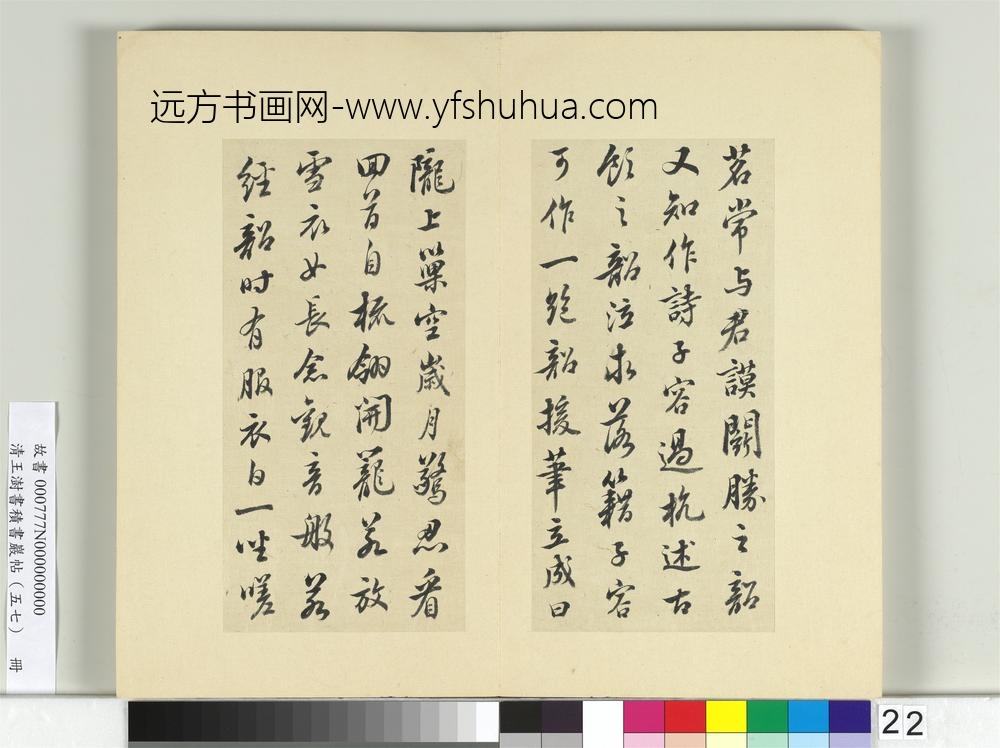 远方书画网-www.yfshuhua.com
茗常与君謨鬬勝之韶
又知作詩子容過杭述古
飲之韶泣求落籍子容
可作一絶韶援筆立成曰
隴上巢空歲月驚忍看
回首自梳翎開籠若放
雪衣女長念觀音般若
經韶时有服衣白一坐嗟
故書 000777N000000000
清王澍書積書巖帖（五七） 冊
22